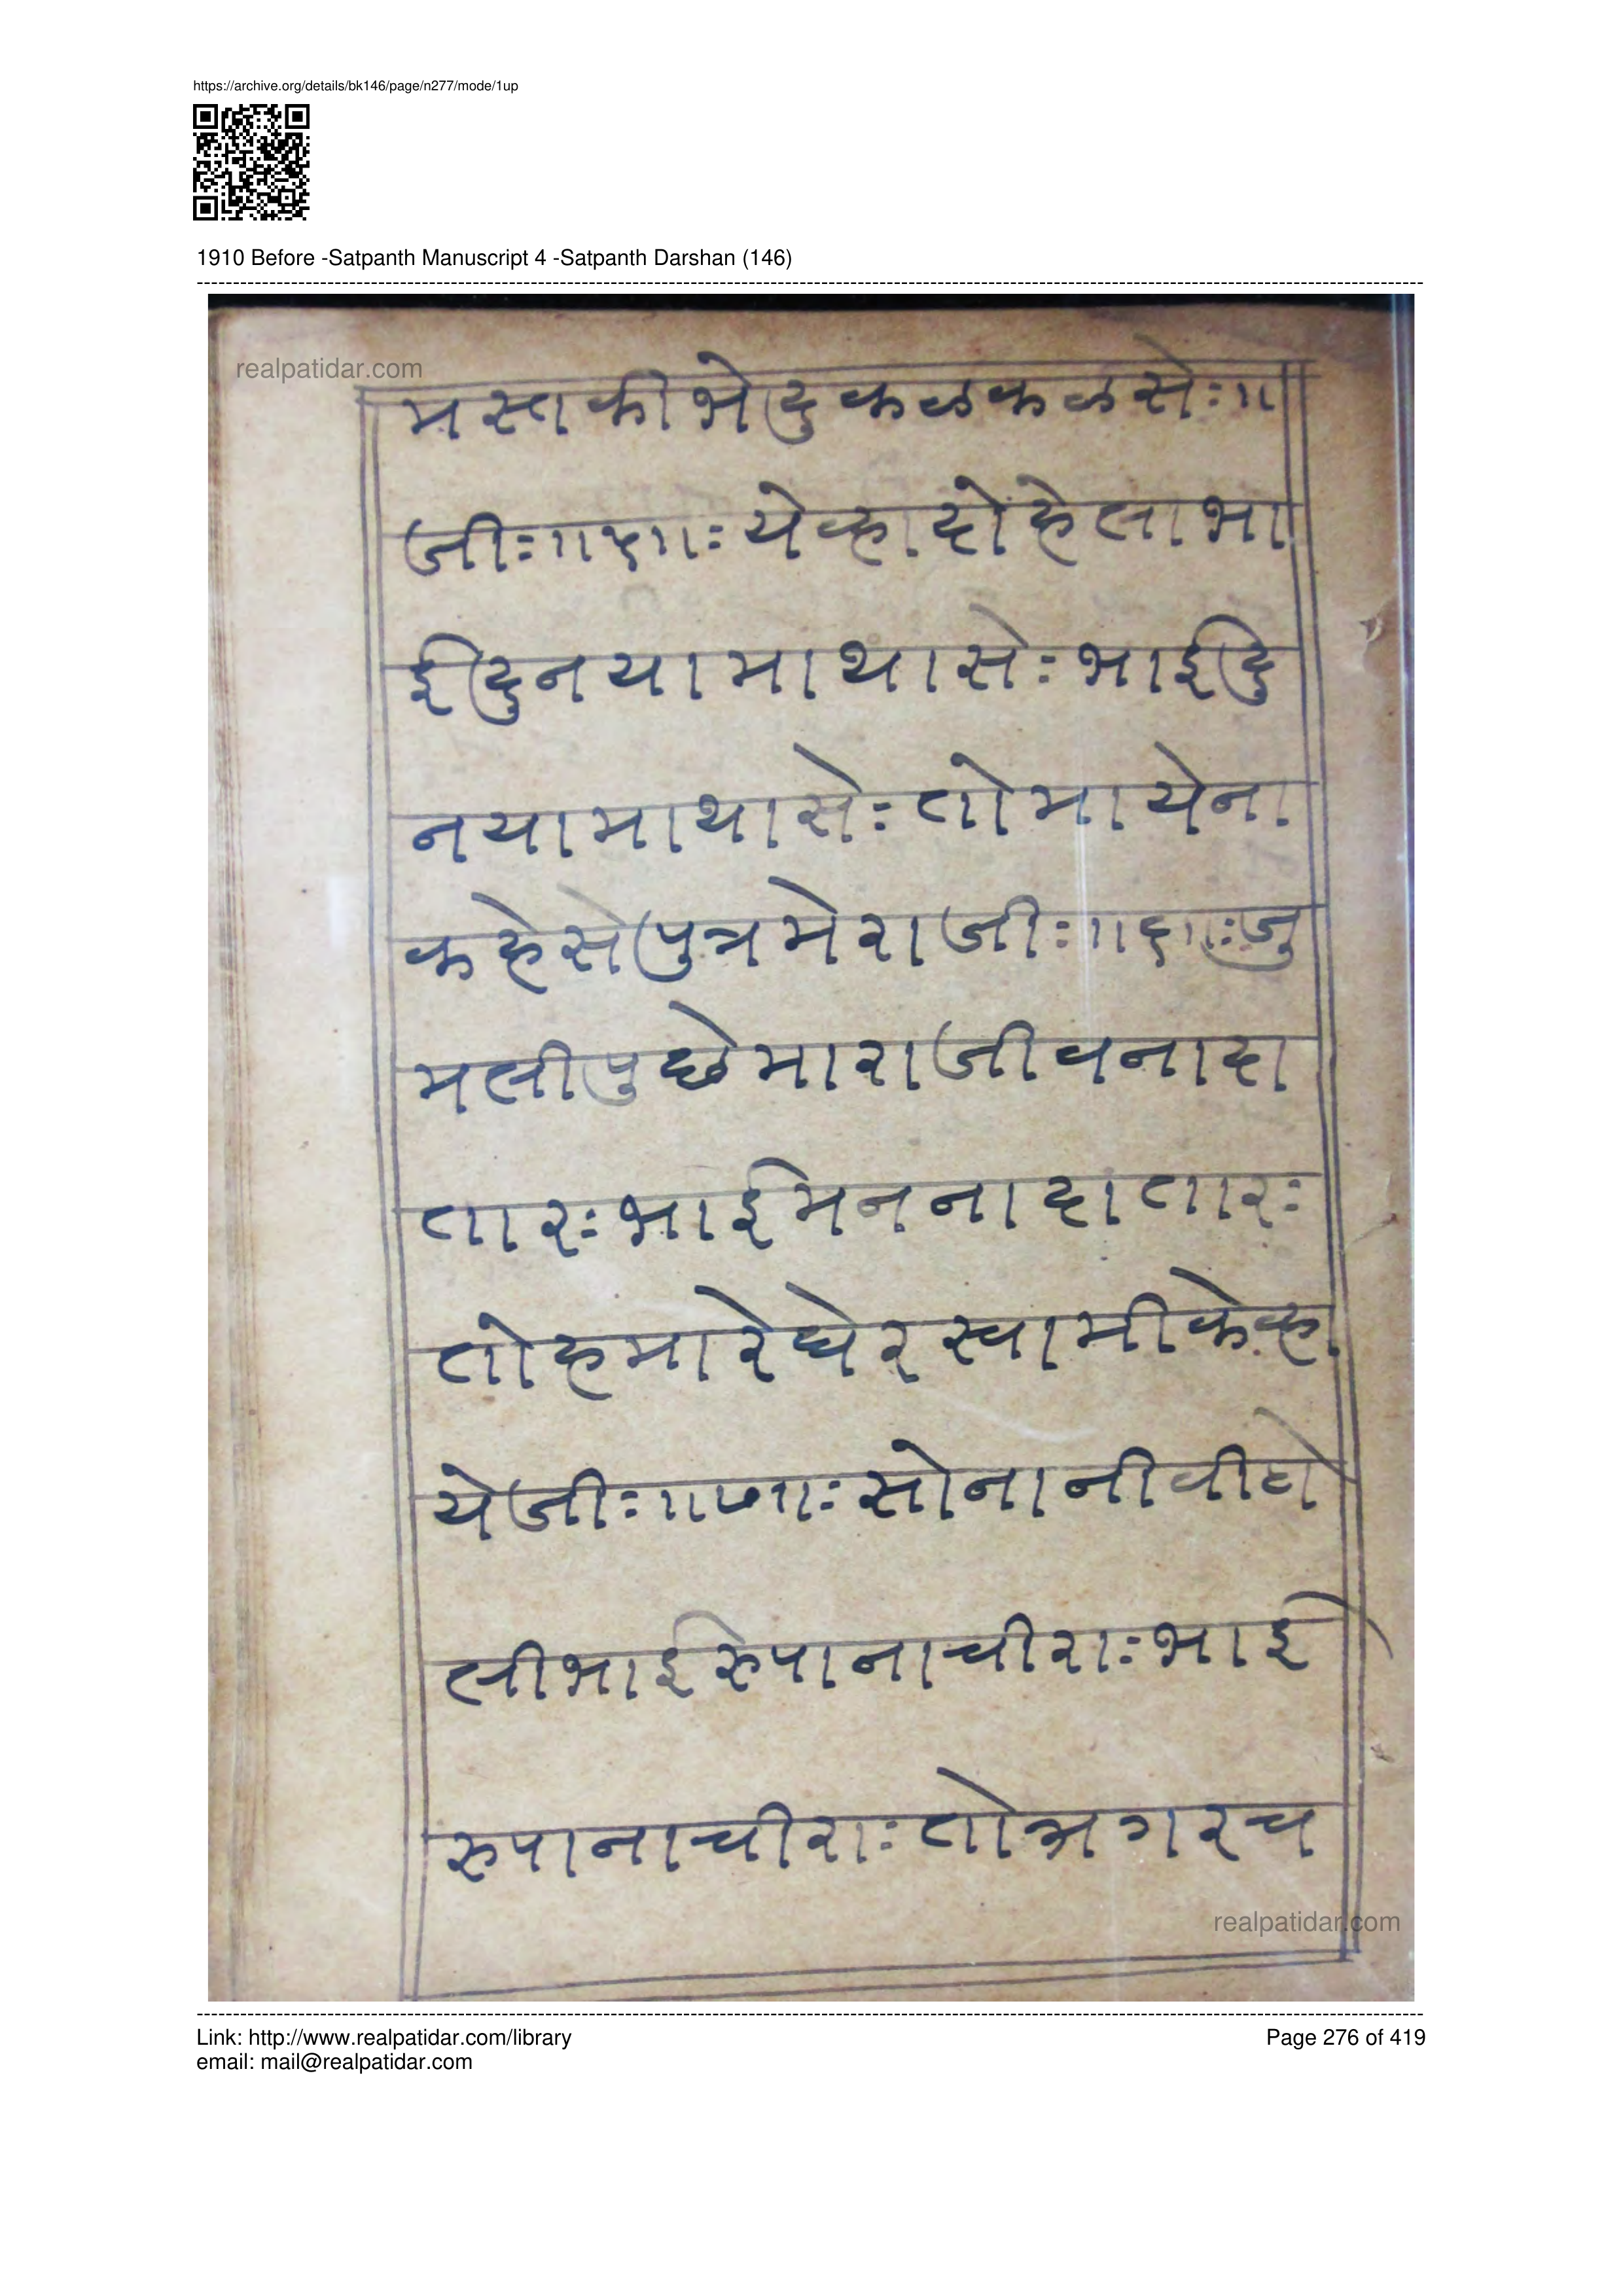 https://archive.org/details/bk146/page/n277/mode/1up
1910 Before -Satpanth Manuscript 4 -Satpanth Darshan (146)
realpatidar.com
मस्तकीभेदुकळकळसेः॥
जीः॥५॥ःयेव्हादोहेलाभा
ईदुनयामाथासेःभाईदु
नयामाथासेःतोमायेना
कहेसेपुत्रमेराजीः॥६॥ःजु
मलीपुछेमाराजीवनादा
तारःभाईमननादातारः
तोहमारेघेरस्वामीकेव्हा
येजीः॥७॥ःसोनानीवीटो
लीभाईरुपानाचीराःभाई
रुपानाचीराःतोअगरच
realpatidar.com
Link: http://www.realpatidar.com/library
email: mail@realpatidar.com
Page 276 of 419